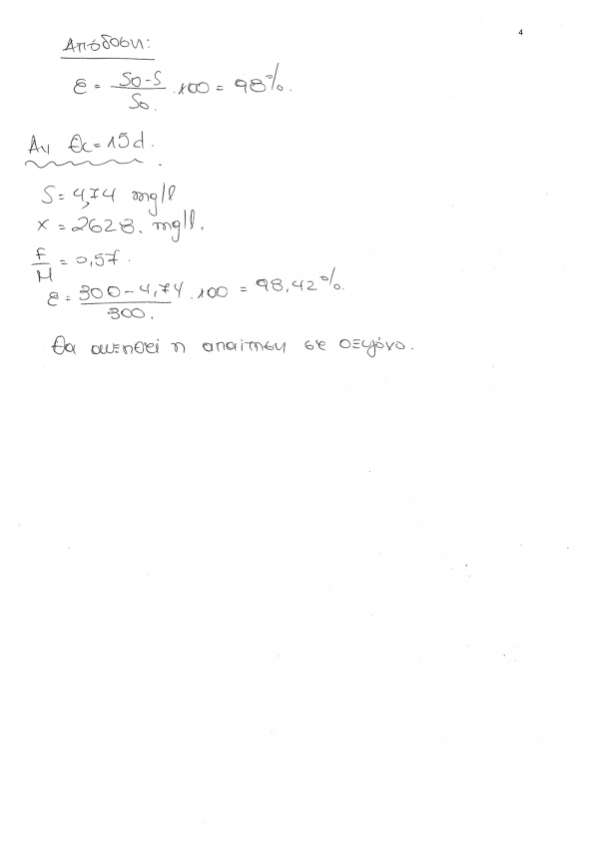 4
Απόδοση:
ε = (S₀-S)/S₀ . 100 = 98%.
Αν θc = 15d.
S = 4,74 mg/l
x = 2628. mg/l.
F/M = 0,57.
ε = (300 - 4,74)/300 . 100 = 98,42%.
Θα αυξηθεί η απαίτηση σε οξυγόνο.